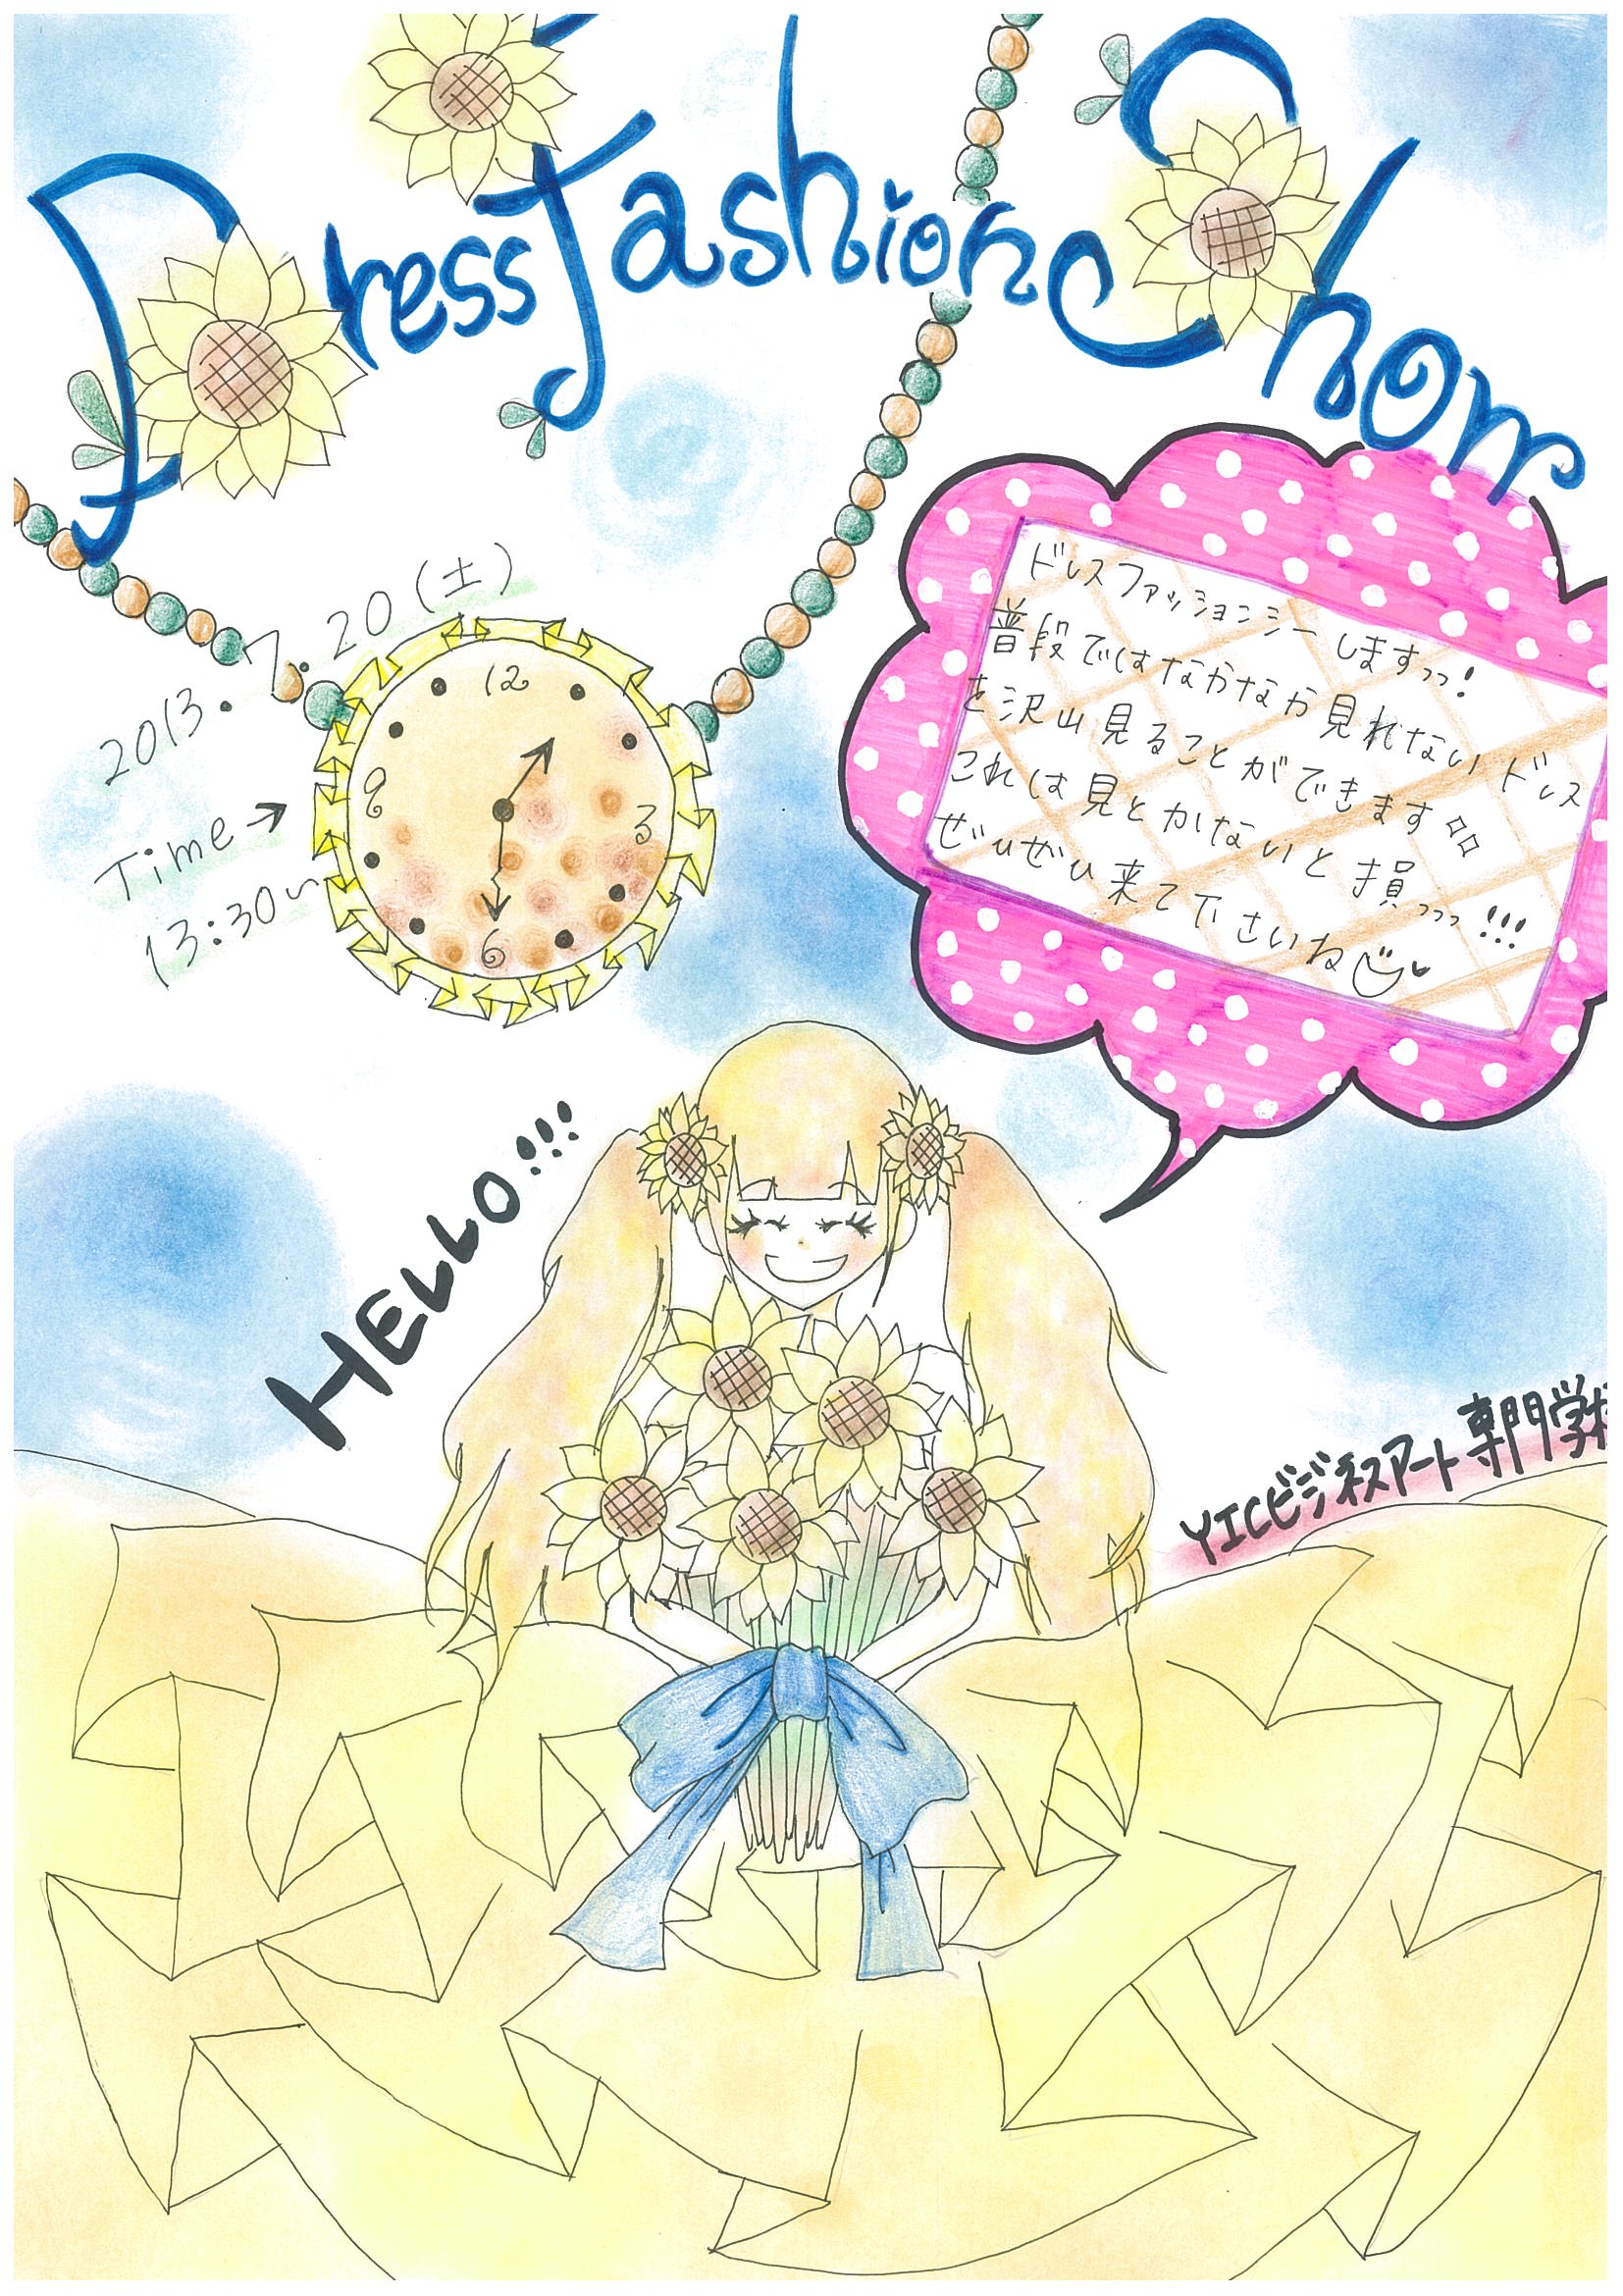 Dress Fashion Show
2013.7.20(土)
Time→
13:30~
12
3
6
9
ドレスファッションショーしますっっ!
普段ではなかなか見れないドレス
を沢山見ることができます
これは見とかないと損っっっ!!!
ぜひぜひ来て下さいね
HELLO!!!
YICビジネスアート専門学校